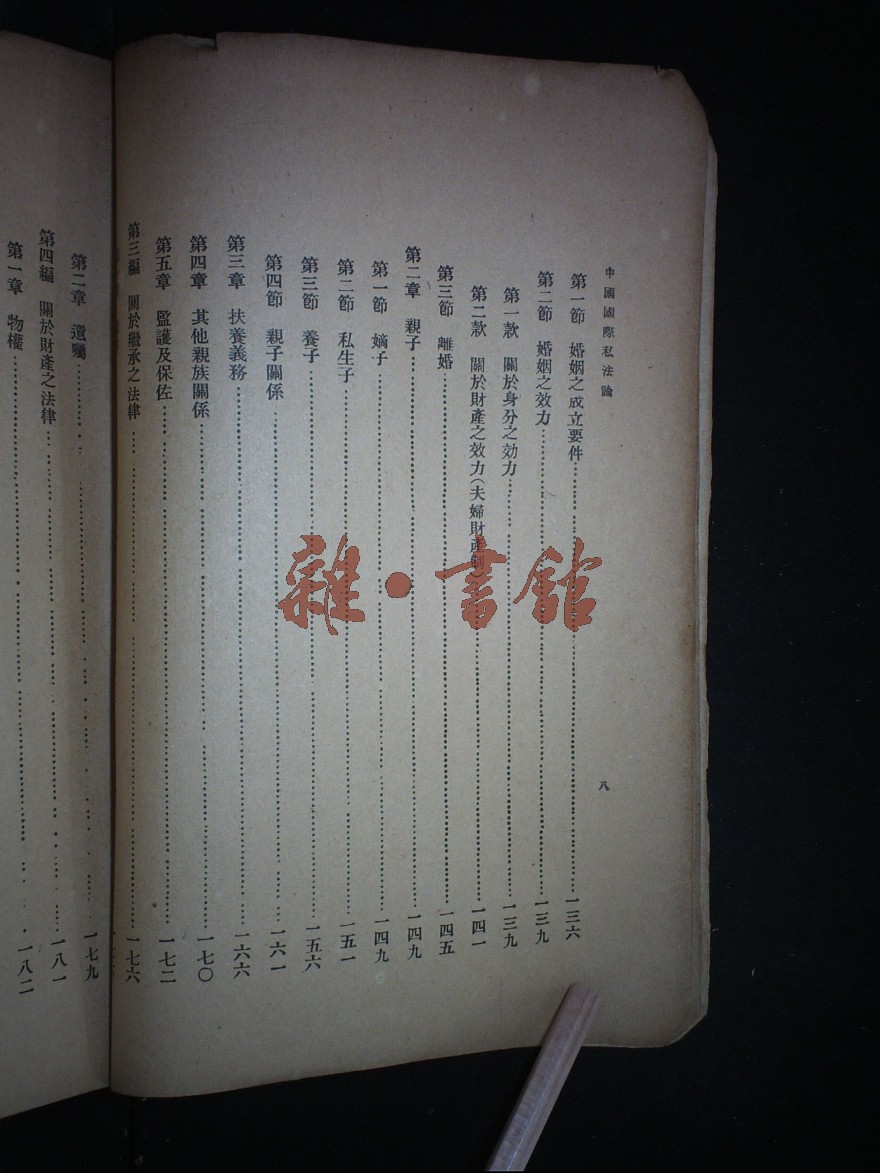 中國國際私法論
八
第一節 婚姻之成立要件……一三六
第二節 婚姻之效力……一三九
第一款 關於身分之効力……一三九
第二款 關於財產之效力(夫婦財產制……一四一
第三節 離婚……一四五
第二章 親子……一四九
第一節 嫡子……一四九
第二節 私生子……一五一
第三節 養子……一五六
第四節 親子關係……一六一
第三章 扶養義務……一六六
第四章 其他親族關係……一七〇
第五章 監護及保佐……一七二
第三編 關於繼承之法律……一七六
第二章 遺囑……一七九
第四編 關於財產之法律……一八一
第一章 物權……一八二
雜·書館